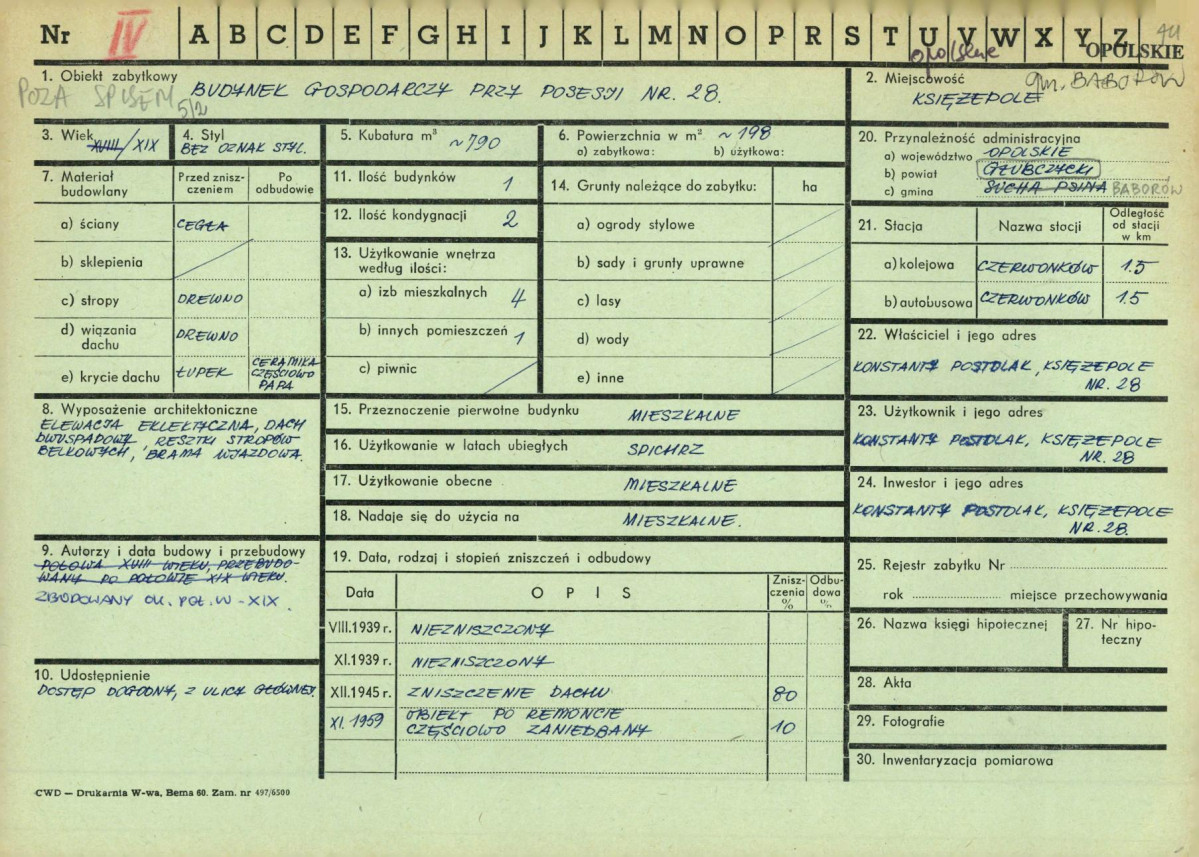 Nr IV A B C D E F G H I J K L M N O P R S T U V W X Y Z
OPOLSKIE
opolskie
1. Obiekt zabytkowy
POZA SPISEM 5/2
BUDYNEK GOSPODARCZY PRZY POSESJI NR. 28.
2. Miejscowość
gm. BABORÓW
KSIĘŻEPOLE
3. Wiek
XVIII/XIX
4. Styl
BEZ OZNAK STYL.
5. Kubatura m³
~790
6. Powierzchnia w m² ~198
a) zabytkowa: b) użytkowa:
20. Przynależność administracyjna
a) województwo OPOLSKIE
b) powiat GŁUBCZYCKI
c) gmina SUCHA PSINA BABORÓW
7. Materiał budowlany
Przed znisz-
czeniem
Po
odbudowie
a) ściany CEGŁA
b) sklepienia
c) stropy DREWNO
d) wiązania
dachu DREWNO
e) krycie dachu ŁUPEK
CERAMIKA
CZĘŚCIOWO
PAPA
11. Ilość budynków 1
12. Ilość kondygnacji 2
13. Użytkowanie wnętrza
według ilości:
a) izb mieszkalnych 4
b) innych pomieszczeń 1
c) piwnic
14. Grunty należące do zabytku: ha
a) ogrody stylowe
b) sady i grunty uprawne
c) lasy
d) wody
e) inne
21. Stacja
Nazwa stacji
Odległość
od stacji
w km
a) kolejowa CZERWONKÓW 1.5
b) autobusowa CZERWONKÓW 1.5
22. Właściciel i jego adres
KONSTANTY POSTOLAK, KSIĘŻEPOLE
NR. 28
8. Wyposażenie architektoniczne
ELEWACJA EKLEKTYCZNA, DACH
DWUSPADOWY, RESZTKI STROPÓW
BELKOWYCH, BRAMA WJAZDOWA.
15. Przeznaczenie pierwotne budynku MIESZKALNE
16. Użytkowanie w latach ubiegłych SPICHRZ
17. Użytkowanie obecne MIESZKALNE
18. Nadaje się do użycia na MIESZKALNE.
23. Użytkownik i jego adres
KONSTANTY POSTOLAK, KSIĘŻEPOLE
NR. 28
24. Inwestor i jego adres
KONSTANTY POSTOLAK, KSIĘŻEPOLE
NR. 28.
9. Autorzy i data budowy i przebudowy
POŁOWA XVIII WIEKU, PRZEBUDO-
WANY PO POŁOWIE XIX WIEKU.
ZBUDOWANY OK. POŁ. W - XIX.
10. Udostępnienie
DOSTĘP DOGODNY, Z ULICY GŁÓWNEJ.
19. Data, rodzaj i stopień zniszczeń i odbudowy
Data
OPIS
Znisz-
czenia
%
Odbu-
dowa
%
VIII.1939 r. NIEZNISZCZONY
XI.1939 r. NIEZNISZCZONY
XII.1945 r. ZNISZCZENIE DACHU 80
XI. 1959 OBIEKT PO REMONCIE
CZĘŚCIOWO ZANIEDBANY 10
25. Rejestr zabytku Nr
rok miejsce przechowywania
26. Nazwa księgi hipotecznej
27. Nr hipo-
teczny
28. Akta
29. Fotografie
30. Inwentaryzacja pomiarowa
CWD — Drukarnia W-wa, Bema 60. Zam. nr 497/6500